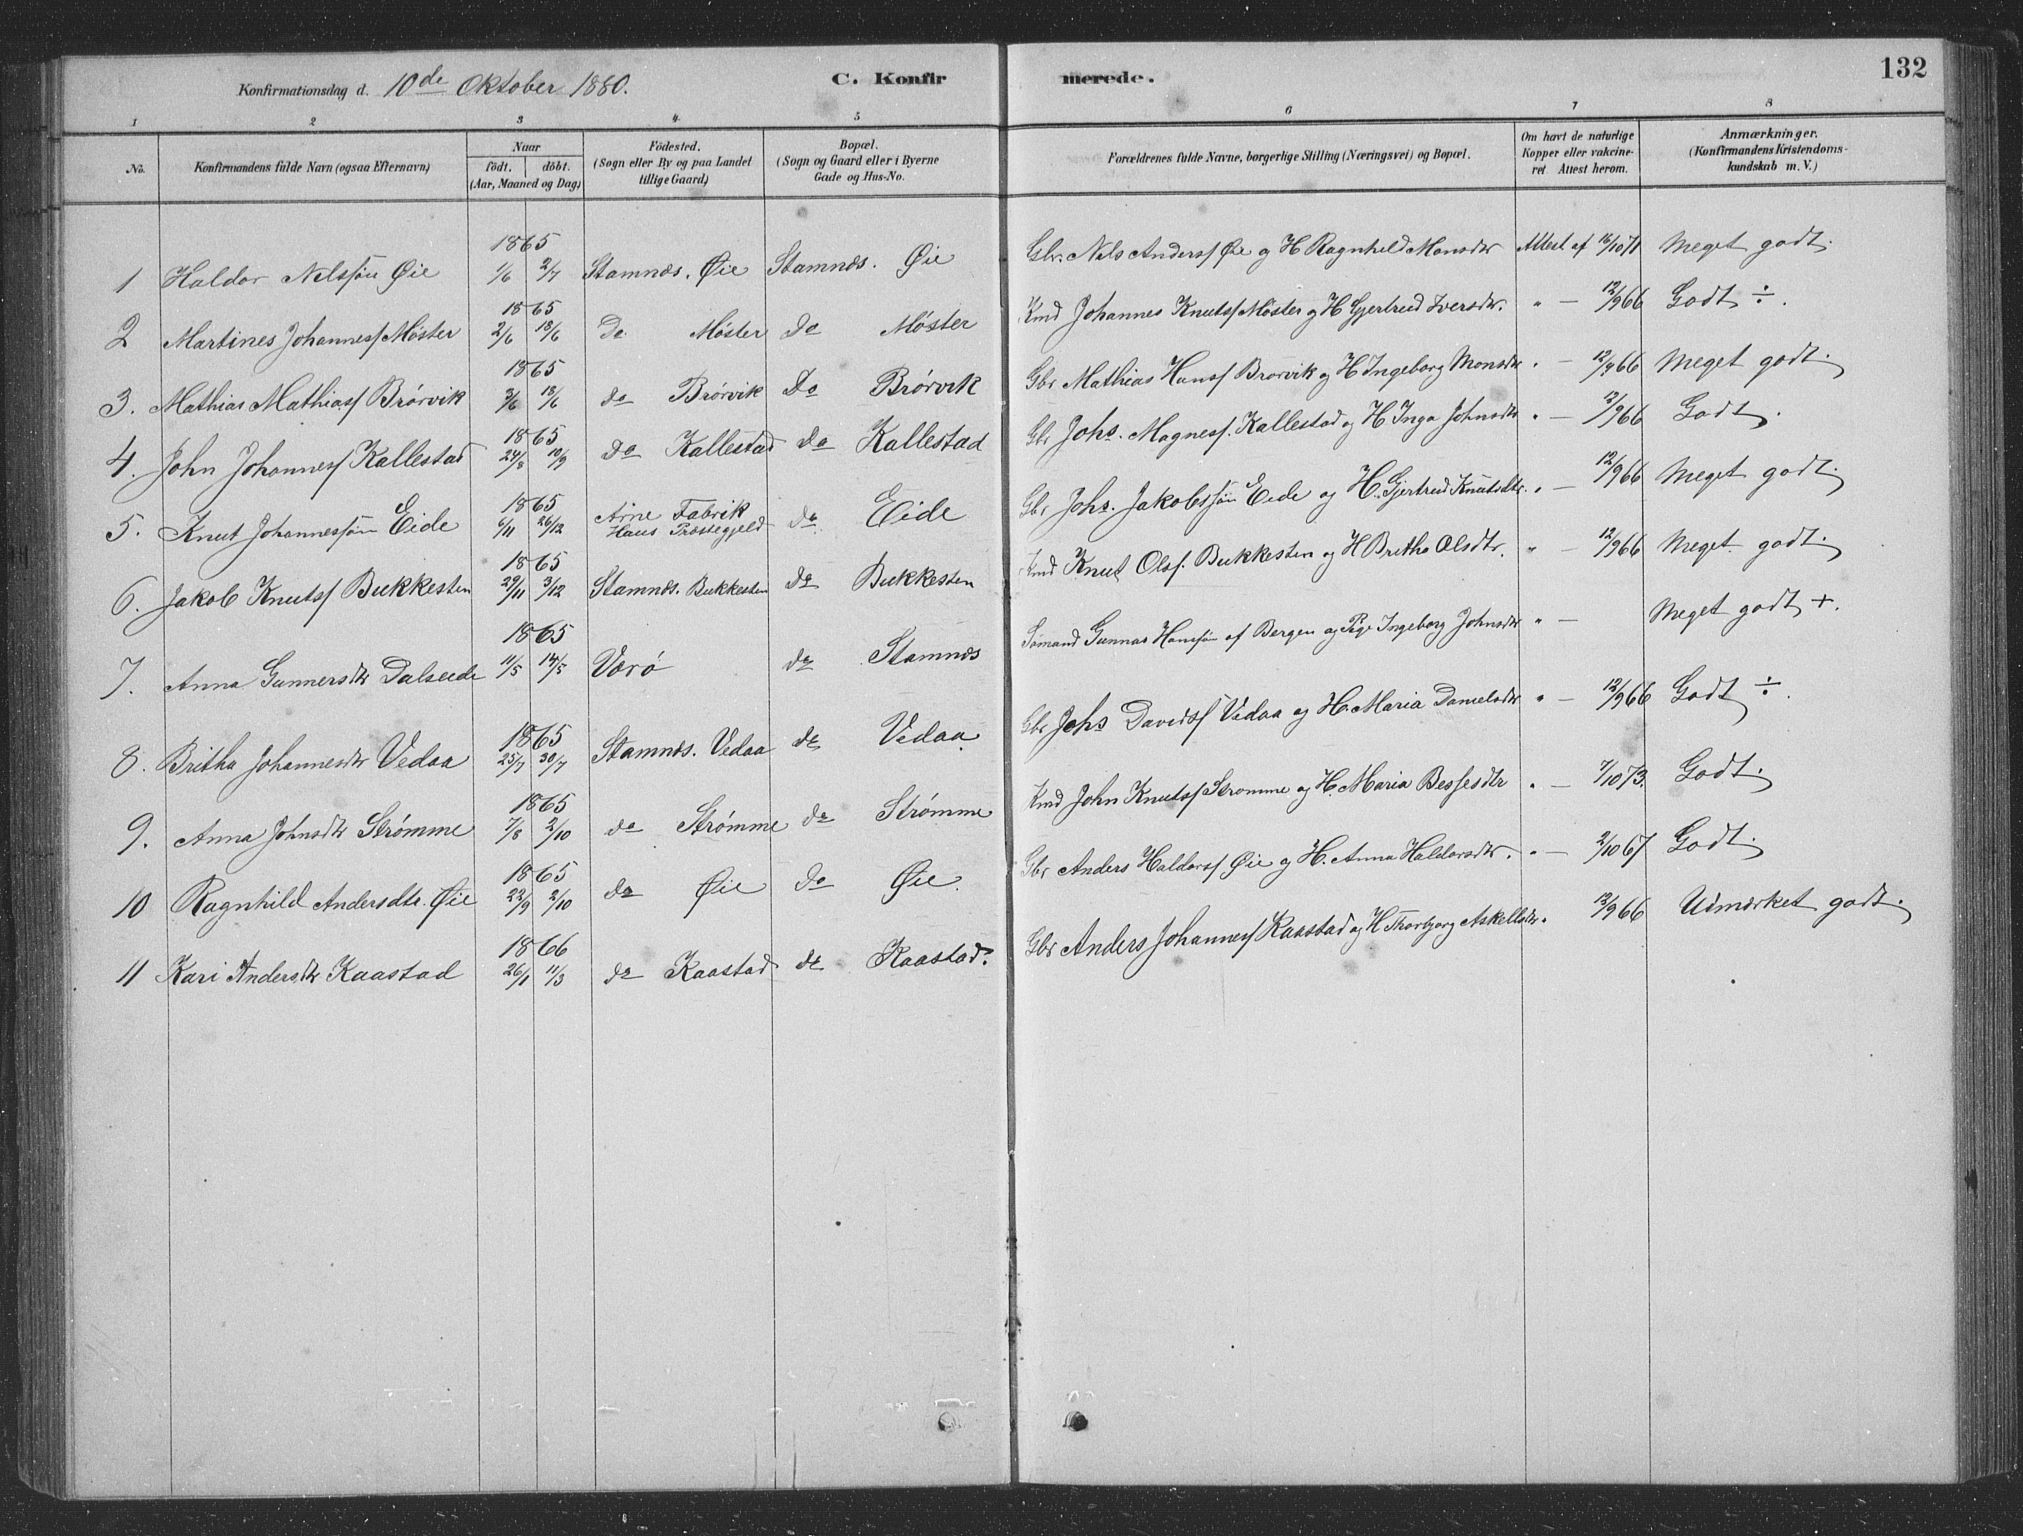 132
Konfirmationsdag d. 10de Oktober 1880.
C. Konfirmerede.
1 2 3 4 5 6 7 8
No.
Konfirmandens fulde Navn (ogsaa Efternavn)
Naar
født. døbt.
(Aar, Maaned og Dag)
Födested.
(Sogn eller By og paa Landet
tillige Gaard)
Bopæl.
(Sogn og Gaard eller i Byerne
Gade og Hus-No.
Forældrenes fulde Navne, borgerlige Stilling (Næringsvei) og Bopæl.
Om havt de naturlige
Kopper eller vakcine-
ret Attest herom.
Anmærkninger.
(Konfirmandens Kristendoms-
kundskab m. V.)
1 Haldor Nilssøn Øie 1865 1/6 2/7 Stamnæs. Øie Stamnæs. Øie Gbr. Nils Anderss Øie og H Ragnhild Monsdtr Attest af 16/10 71 Meget godt.
2 Martines Johanness Møster 1865 2/6 18/6 Do Møster Do Møster Kmd Johannes Knutss Møster og H Gjertrud Iversdtr. " — 12/9 66 Godt ÷.
3. Mathias Mathiass Brörvik 1865 3/6 18/6 do Brörvik Do Brörvik Gbr Mathias Hanss Brörvik og H Ingeborg Monsdtr " — 12/9 66 Meget godt.
4. John Johanness Kallestad 1865 24/8 10/9 do Kallestad do Kallestad Gbr Johs. Magness. Kallestad og H Inga Johnsdtr " — 12/9 66 Godt.
5. Knut Johannessøn Eide 1865 6/11 26/12 Arne Fabrik Haus Præstegjeld do Eide Gbr Johs. Jakobssøn Eide og H. Gjertrud Knutsdtr. " — 12/9 66 Meget godt.
6. Jakob Knutss Bukkesten 1865 29/11 3/12 Stamnæs. Bukkesten do Bukkesten Kmd Knut Olss. Bukkesten og H Britha Olsdtr. " — 12/9 66 Meget godt.
7. Anna Gunnersdtr Dalseide 1865 11/5 14/5 Værö do Stamnæs Sömand Gunnar Hanssøn af Bergen og Pige Ingeborg Johnsdtr " — Meget godt +.
8. Britha Johannesdtr Vedaa 1865 25/7 30/7 Stamnæs. Vedaa do Vedaa. Gbr Johs Davids Vedaa og H. Maria Danielsdtr " — 12/9 66 Godt ÷.
9. Anna Johnsdtr Strømme 1865 7/8 2/10 do Strømme do Strømme Kmd John Knutss Strömme og H. Maria Bessesdtr " — 7/10 73. Godt.
10 Ragnhild Andersdtr. Øie 1865 22/9 2/10 do Øie do Øie. Gbr Anders Haldorss Øie og H. Anna Haldorsdtr. " — 2/10 67 Godt.
11 Kari Andersdtr Kaastad 1866 26/1 11/3 do Kaastad do Kaastad. Gbr Anders Johanness Kaastad og H Thorbjorg Askelldtr " 12/9 66 Udmærket godt.